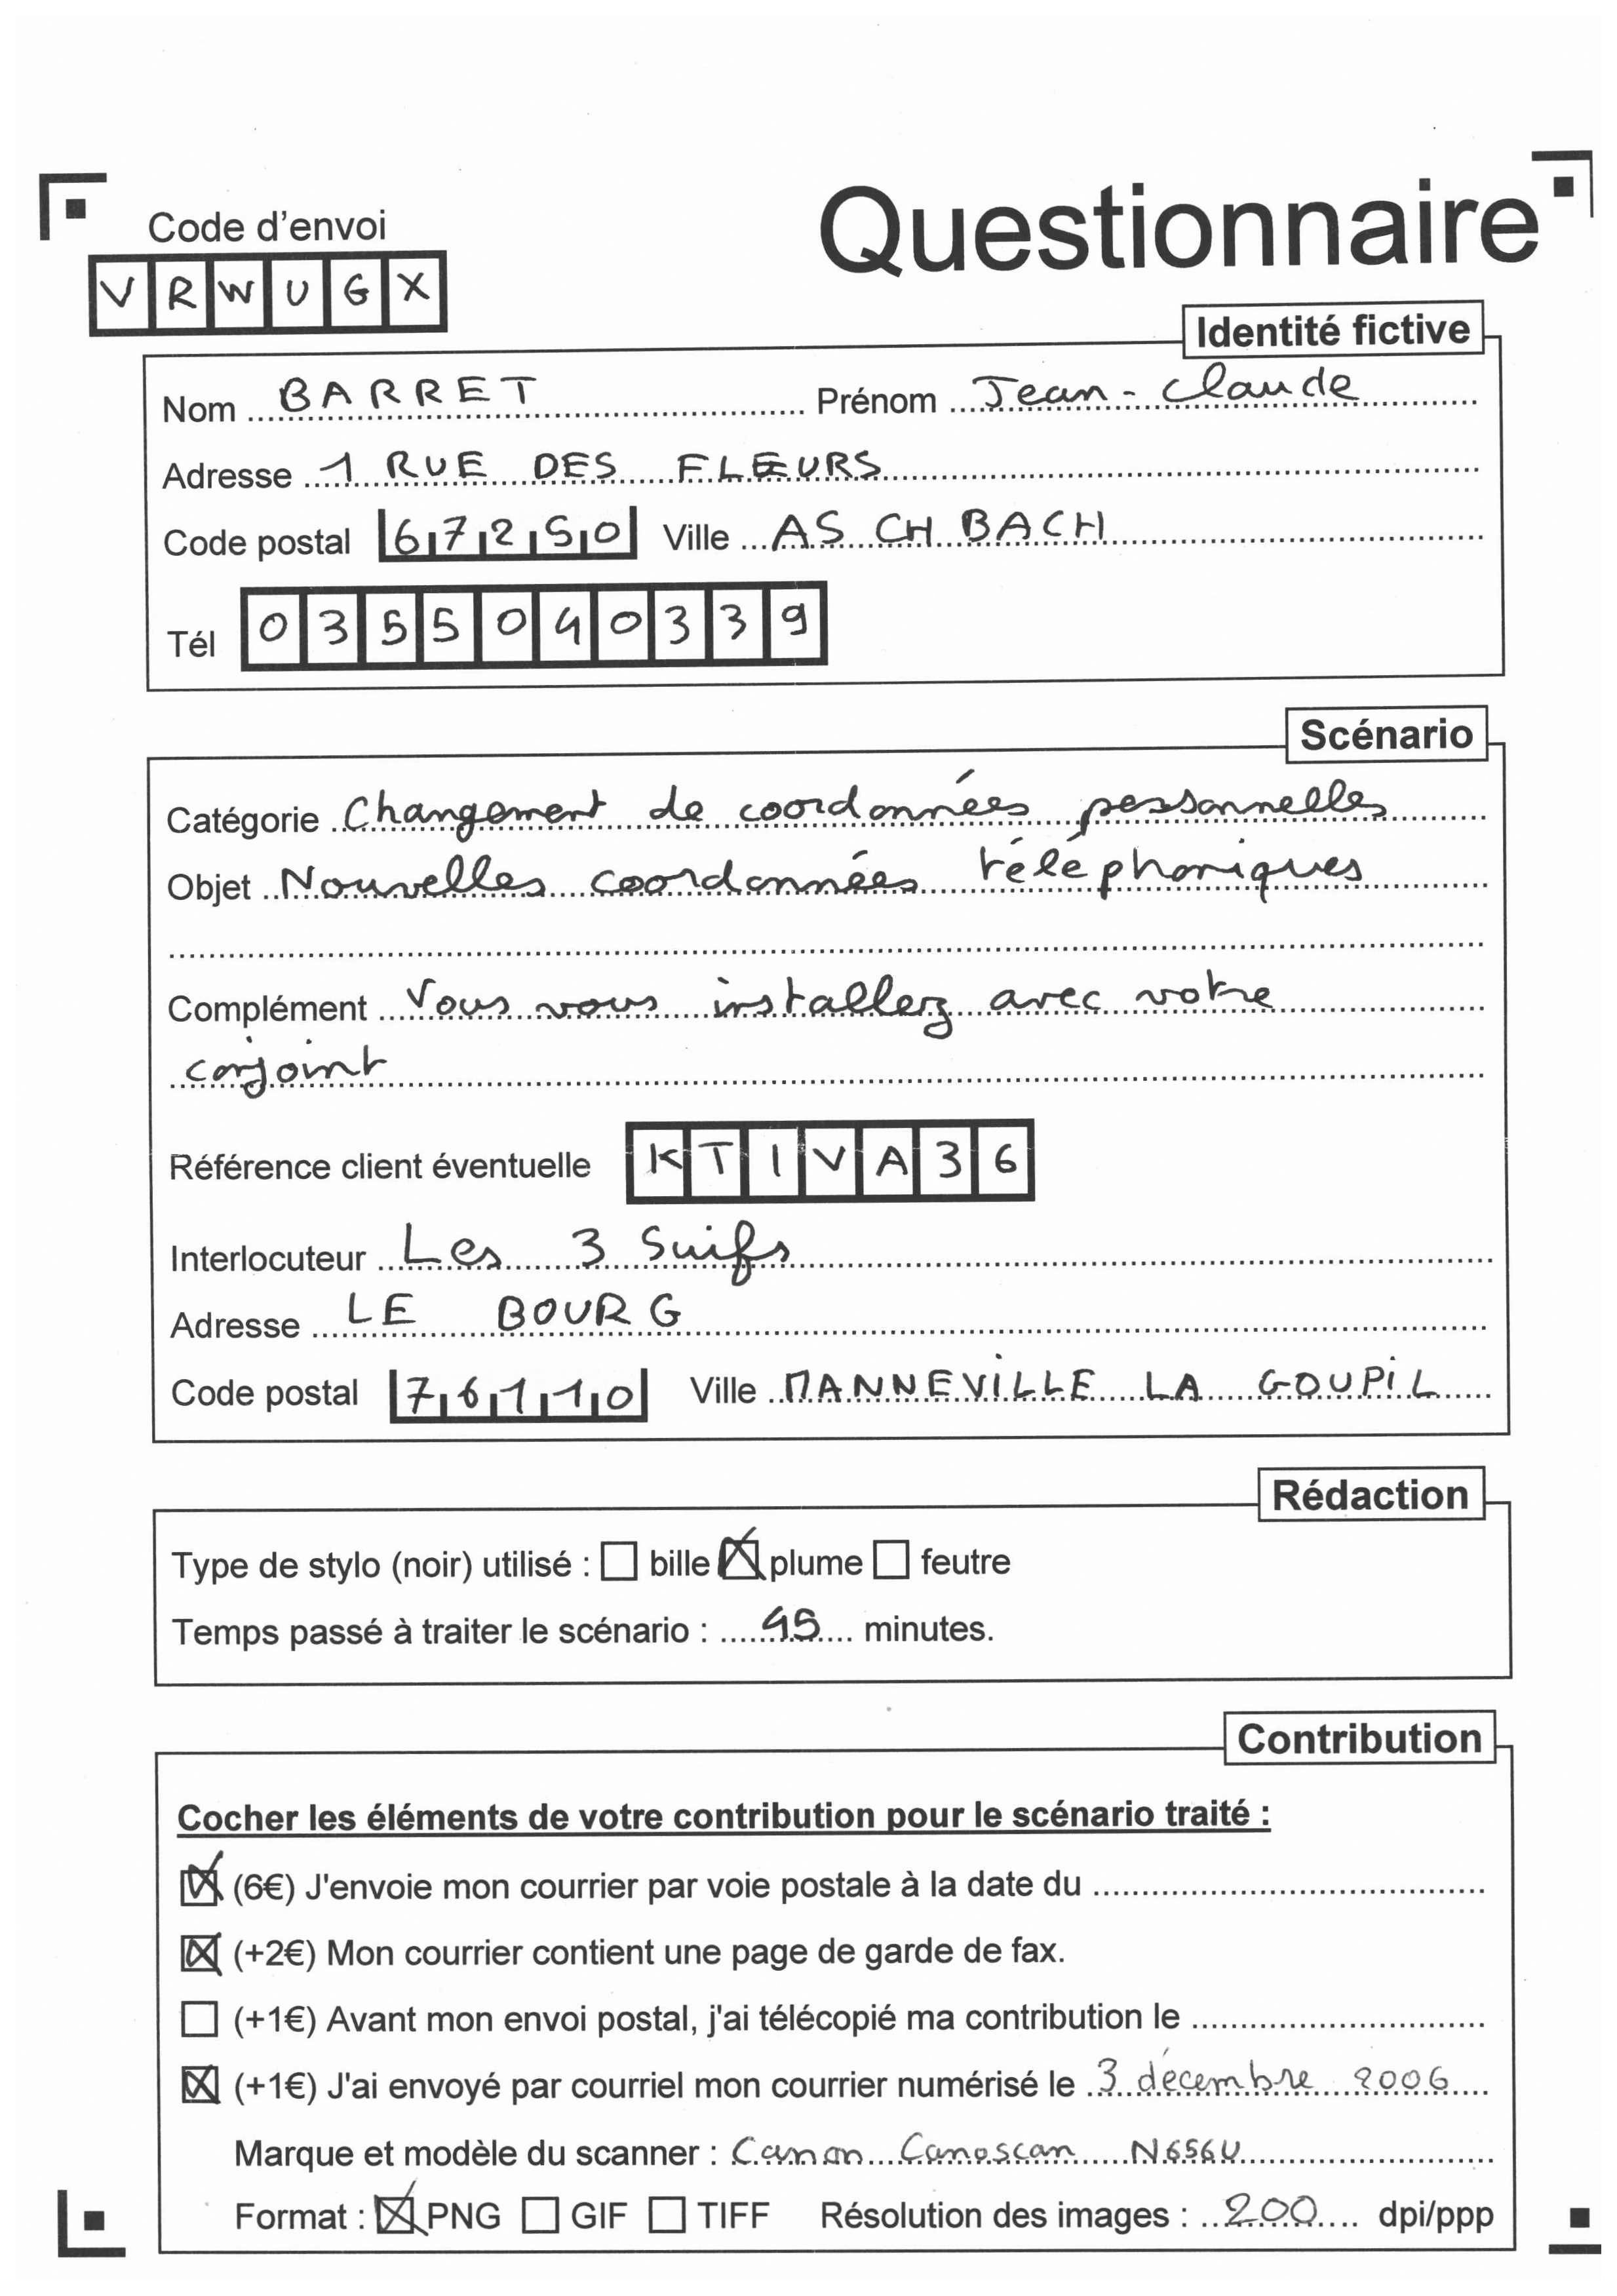 Questionnaire
Code d'envoi
VRWUGX
Identité fictive
Nom BARRET Prénom Jean-Claude
Adresse 1 RUE DES FLEURS
Code postal 67250 Ville ASCHBACH
Tél 0355040339
Scénario
Catégorie Changement de coordonnées personnelles
Objet Nouvelles coordonnées téléphoniques
Complément Vous vous installez avec votre
conjoint
Référence client éventuelle KTIVA36
Interlocuteur Les 3 Suifs
Adresse LE BOURG
Code postal 76110 Ville MANNEVILLE LA GOUPIL
Rédaction
Type de stylo (noir) utilisé : bille plume feutre
Temps passé à traiter le scénario : 45 minutes.
Contribution
Cocher les éléments de votre contribution pour le scénario traité :
(6€) J'envoie mon courrier par voie postale à la date du
(+2€) Mon courrier contient une page de garde de fax.
(+1€) Avant mon envoi postal, j'ai télécopié ma contribution le
(+1€) J'ai envoyé par courriel mon courrier numérisé le 3 décembre 2006
Marque et modèle du scanner : Canon Canoscan N656U
Format : PNG GIF TIFF Résolution des images : 200 dpi/ppp